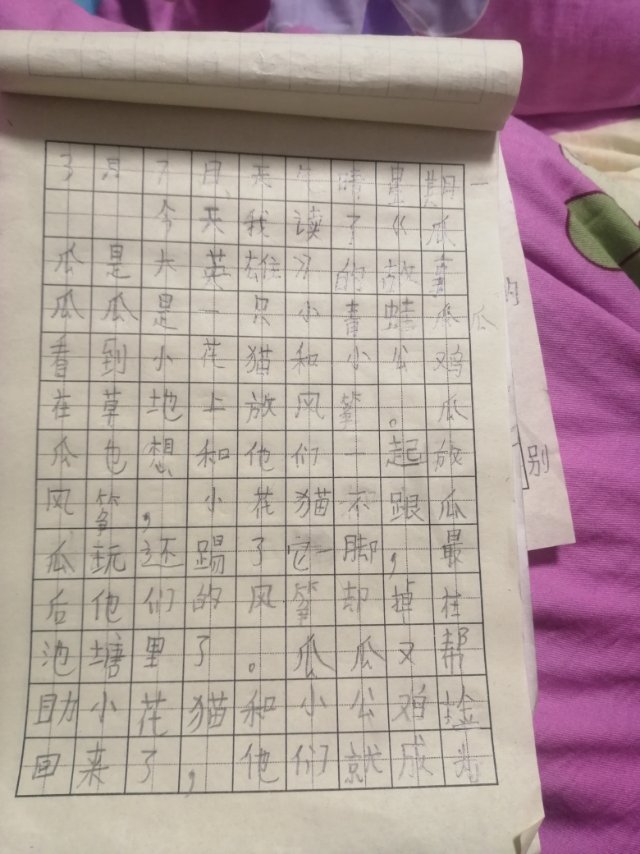 月 日 天气 晴 星期一
今天我读了《瓜
瓜是大英雄》的故事
瓜瓜是一只小青蛙瓜瓜
看到小花猫和小公鸡
在草地上放风筝。瓜
瓜也想和他们一起放
风筝，小花猫不跟瓜
瓜玩还踢了它一脚，最
后他们的风筝却掉在
池塘里了。瓜瓜又帮
助小花猫和小公鸡捡
回来了，他们就成为
的
别